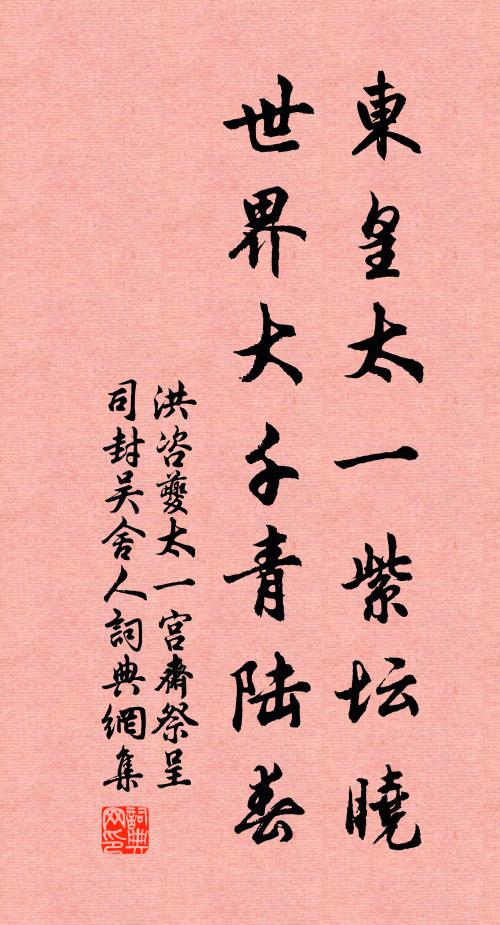 東皇太一紫坛曉
世界大千青陆春
洪咨夔太一宫齋祭呈
司封吴舍人詞典網集
詞典网印